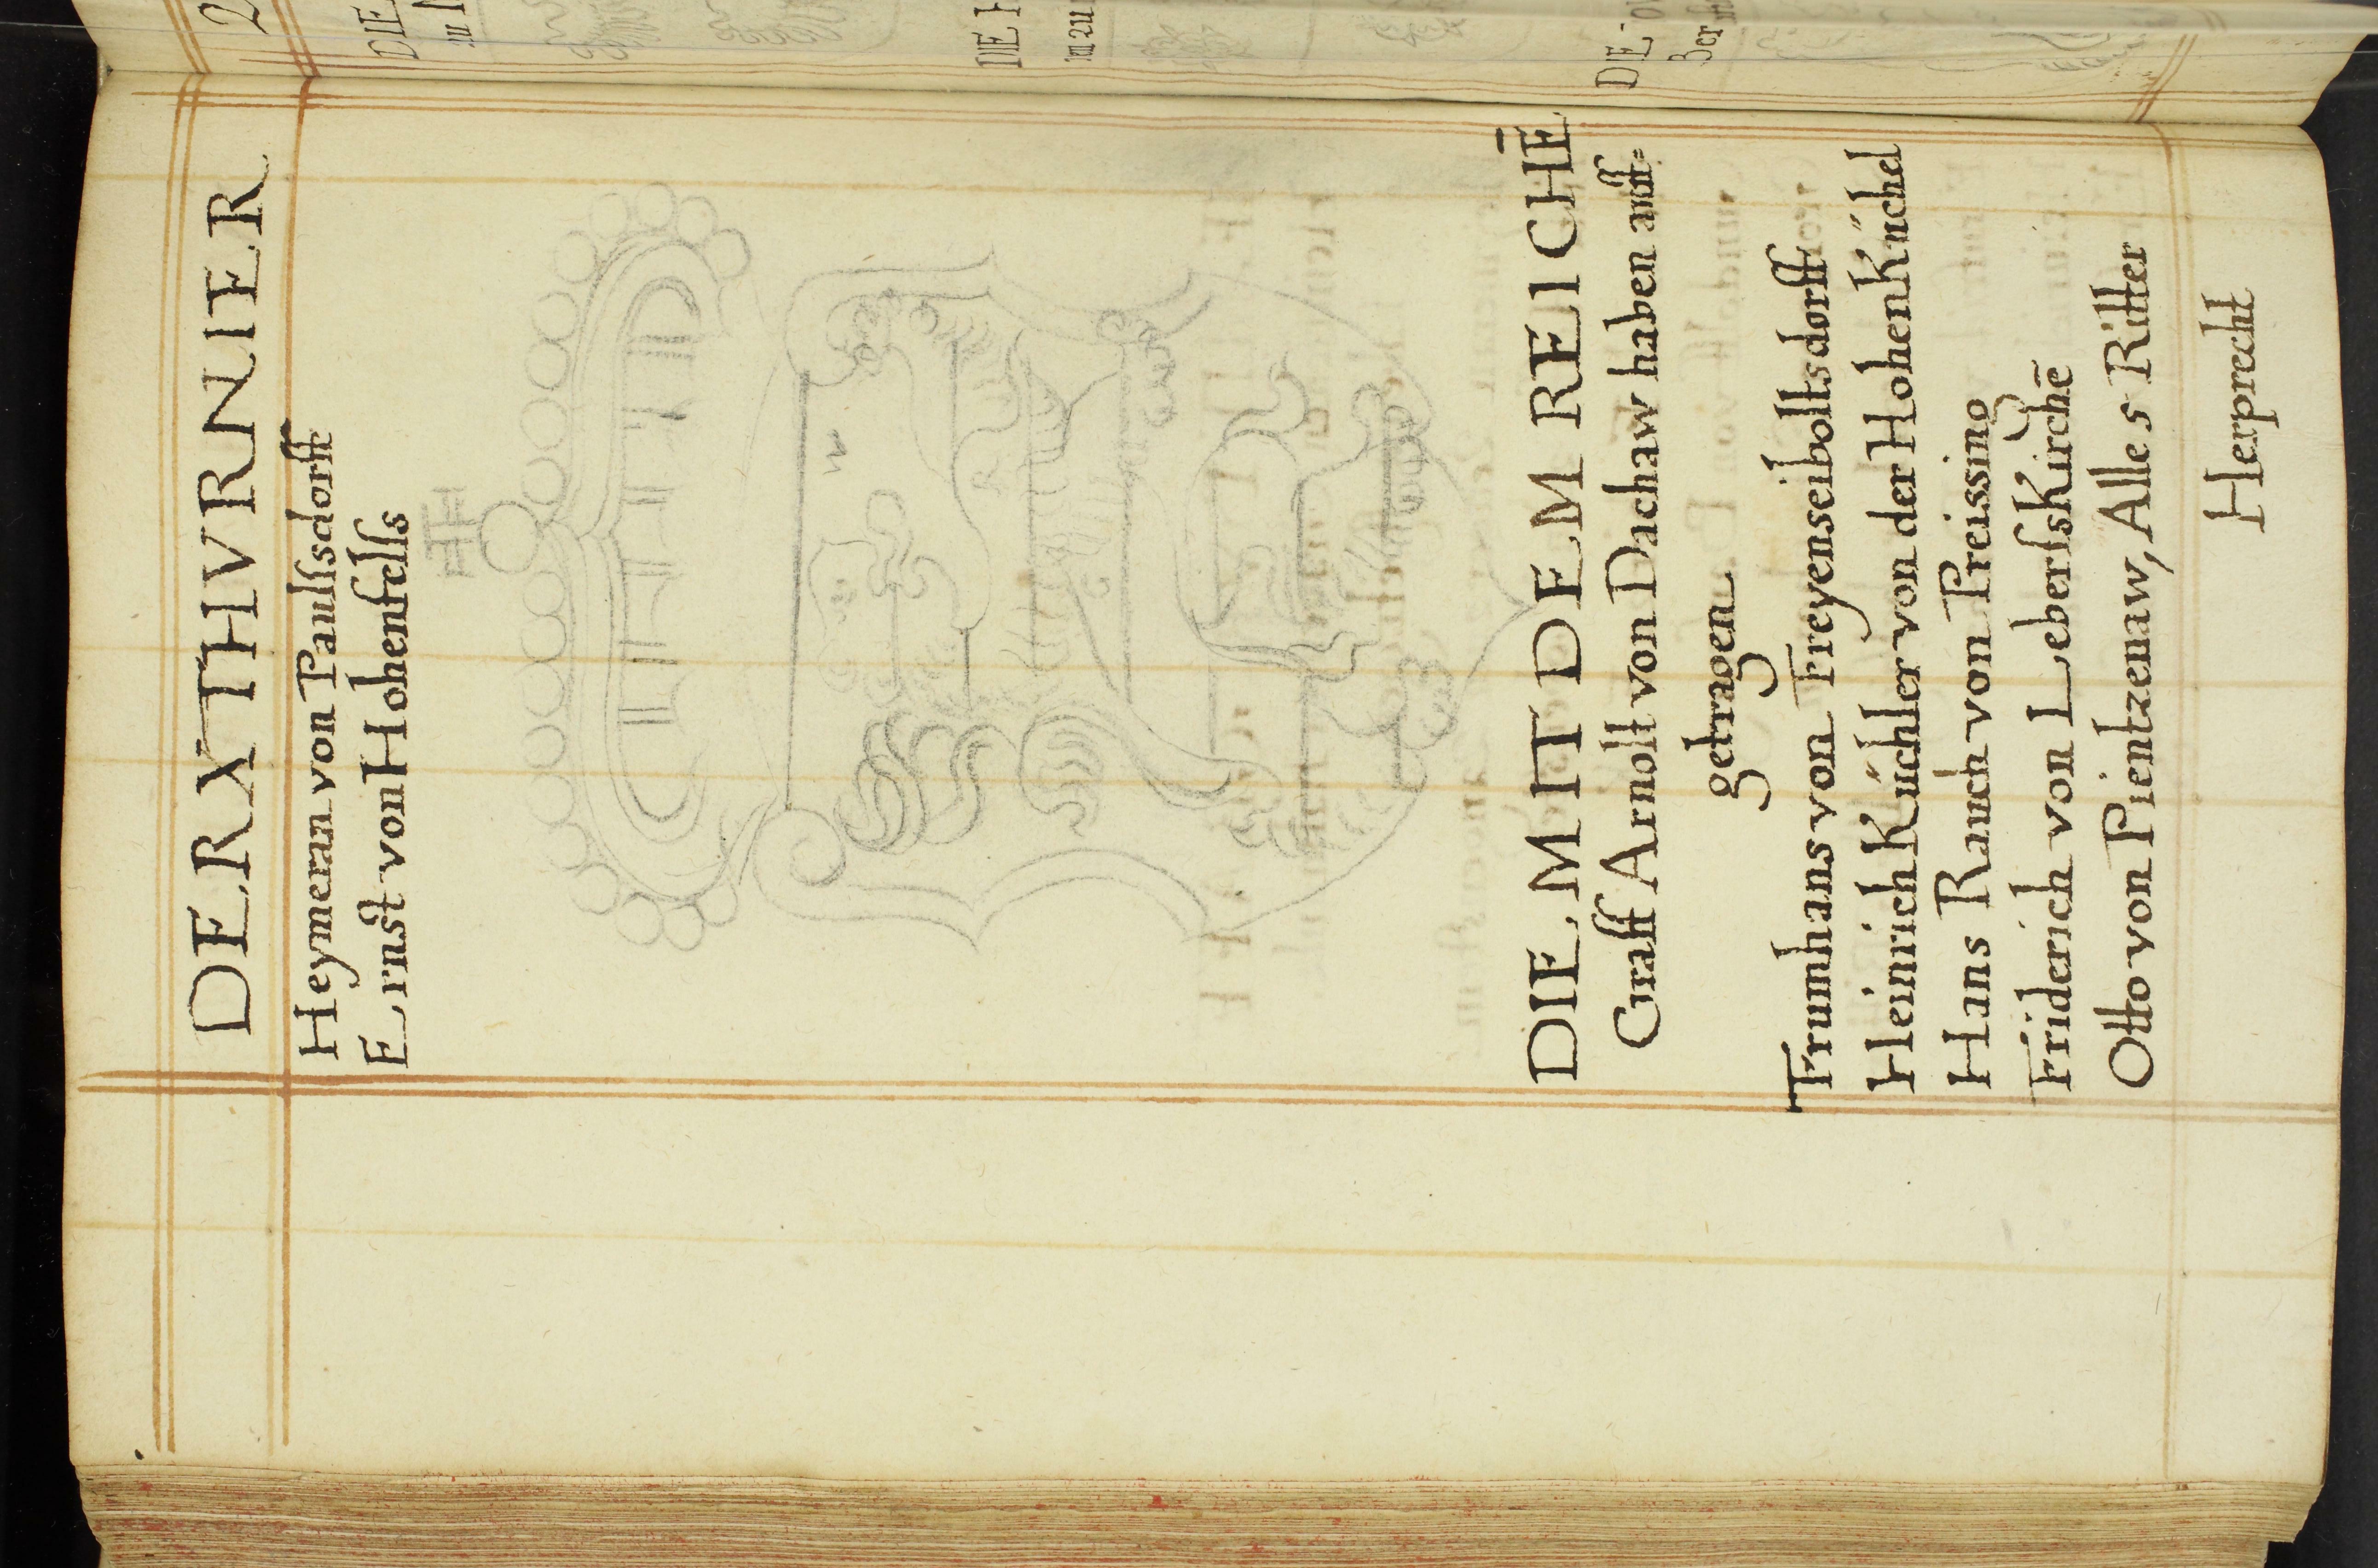 DER X THVRNIER
Heymeran von Paulſsdorff
Ernst von Hohenfelſs
DIE MIT DEM REICHĒ
Graff Arnolt von Dachaw haben auff=
getragen
Frumhans von Freyenseiboltsdorff
Heinrich Küchler von der HohenKüchel
Hans Rauch von Preissing
Friderich von LeberſsKirchē
Otto von Pientzenaw, Alle 5 Ritter
Herprecht
2
DIE
DIE
DIE